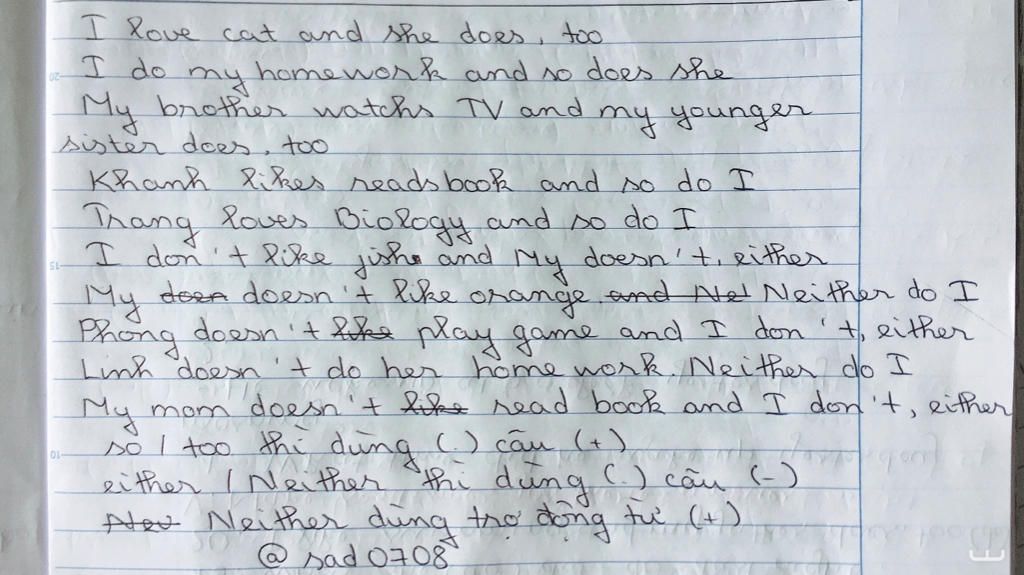 I love cat and she does, too
I do my homework and so does she
My brother watchs TV and my younger
sister does, too
Khanh likes reads book and so do I
Trang loves Biology and so do I
I don't like and My doesn't, either
My doesn't like orange Neither do I
Phong doesn't play game and I don't, either
Linh doesn't do her homework. Neither do I
My mom doesn't read book and I don't, either
so / too thì dùng (.) câu (+)
either / Neither thì dùng (.) câu (-)
Neither dùng trợ động từ (+)
@sad0708